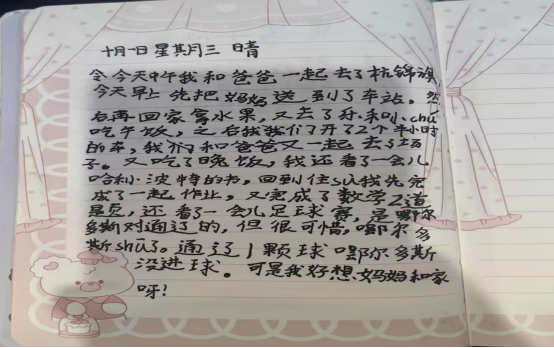 十月一日 星期三 晴
今天中午我和爸爸一起去了杭锦旗
今天早上先把妈妈送到了车站,然
后再回家拿水果,又去了 chu
吃午饭,之后我们开了2个半小时
的车,我们和爸爸又一起去了
子。又吃了晚饭,我还看了一会儿
哈利·波特的书,回到住su我先完
成了一起作业,又完成了数学2道
题,还看了一会儿足球赛,是鄂尔
多斯对通辽的,但很可惜,鄂尔多
斯shu了。通辽1颗球鄂尔多斯
没进球。可是我好想妈妈和家
呀!